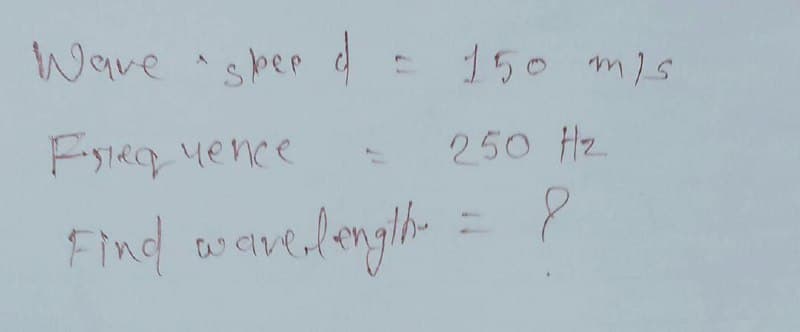 Wave speed = 150 m/s
Frequence = 250 Hz
Find wavelength = ?